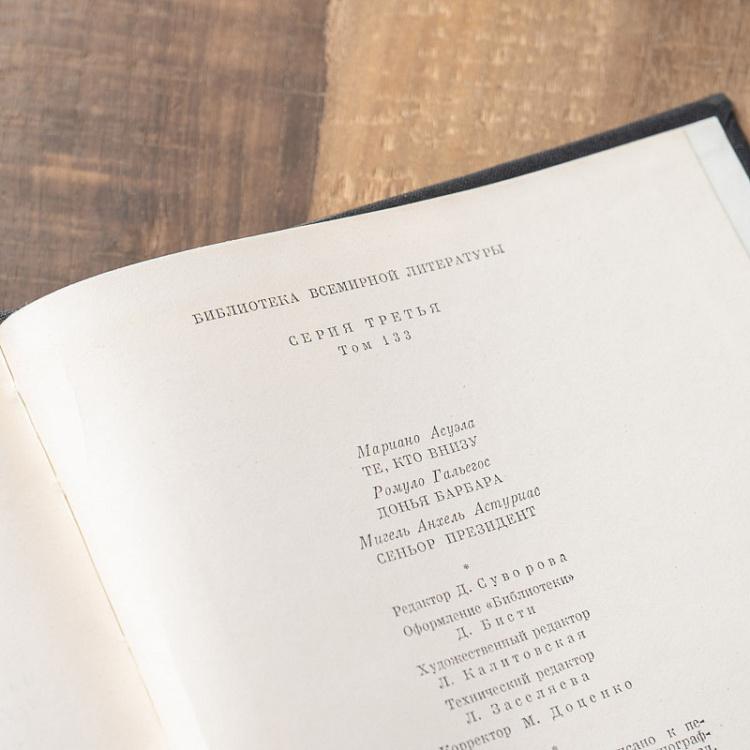 БИБЛИОТЕКА ВСЕМИРНОЙ ЛИТЕРАТУРЫ
СЕРИЯ ТРЕТЬЯ
Том 133
Мариано Асуэла
ТЕ, КТО ВНИЗУ
Ромуло Гальегос
ДОНЬЯ БАРБАРА
Мигель Анхель Астуриас
СЕНЬОР ПРЕЗИДЕНТ
*
Редактор Д. Суворова
Оформление «Библиотеки»
Д. Бисти
Художественный редактор
Л. Калитовская
Технический редактор
Л. Заселяева
Корректор М. Доценко
*
к пе-